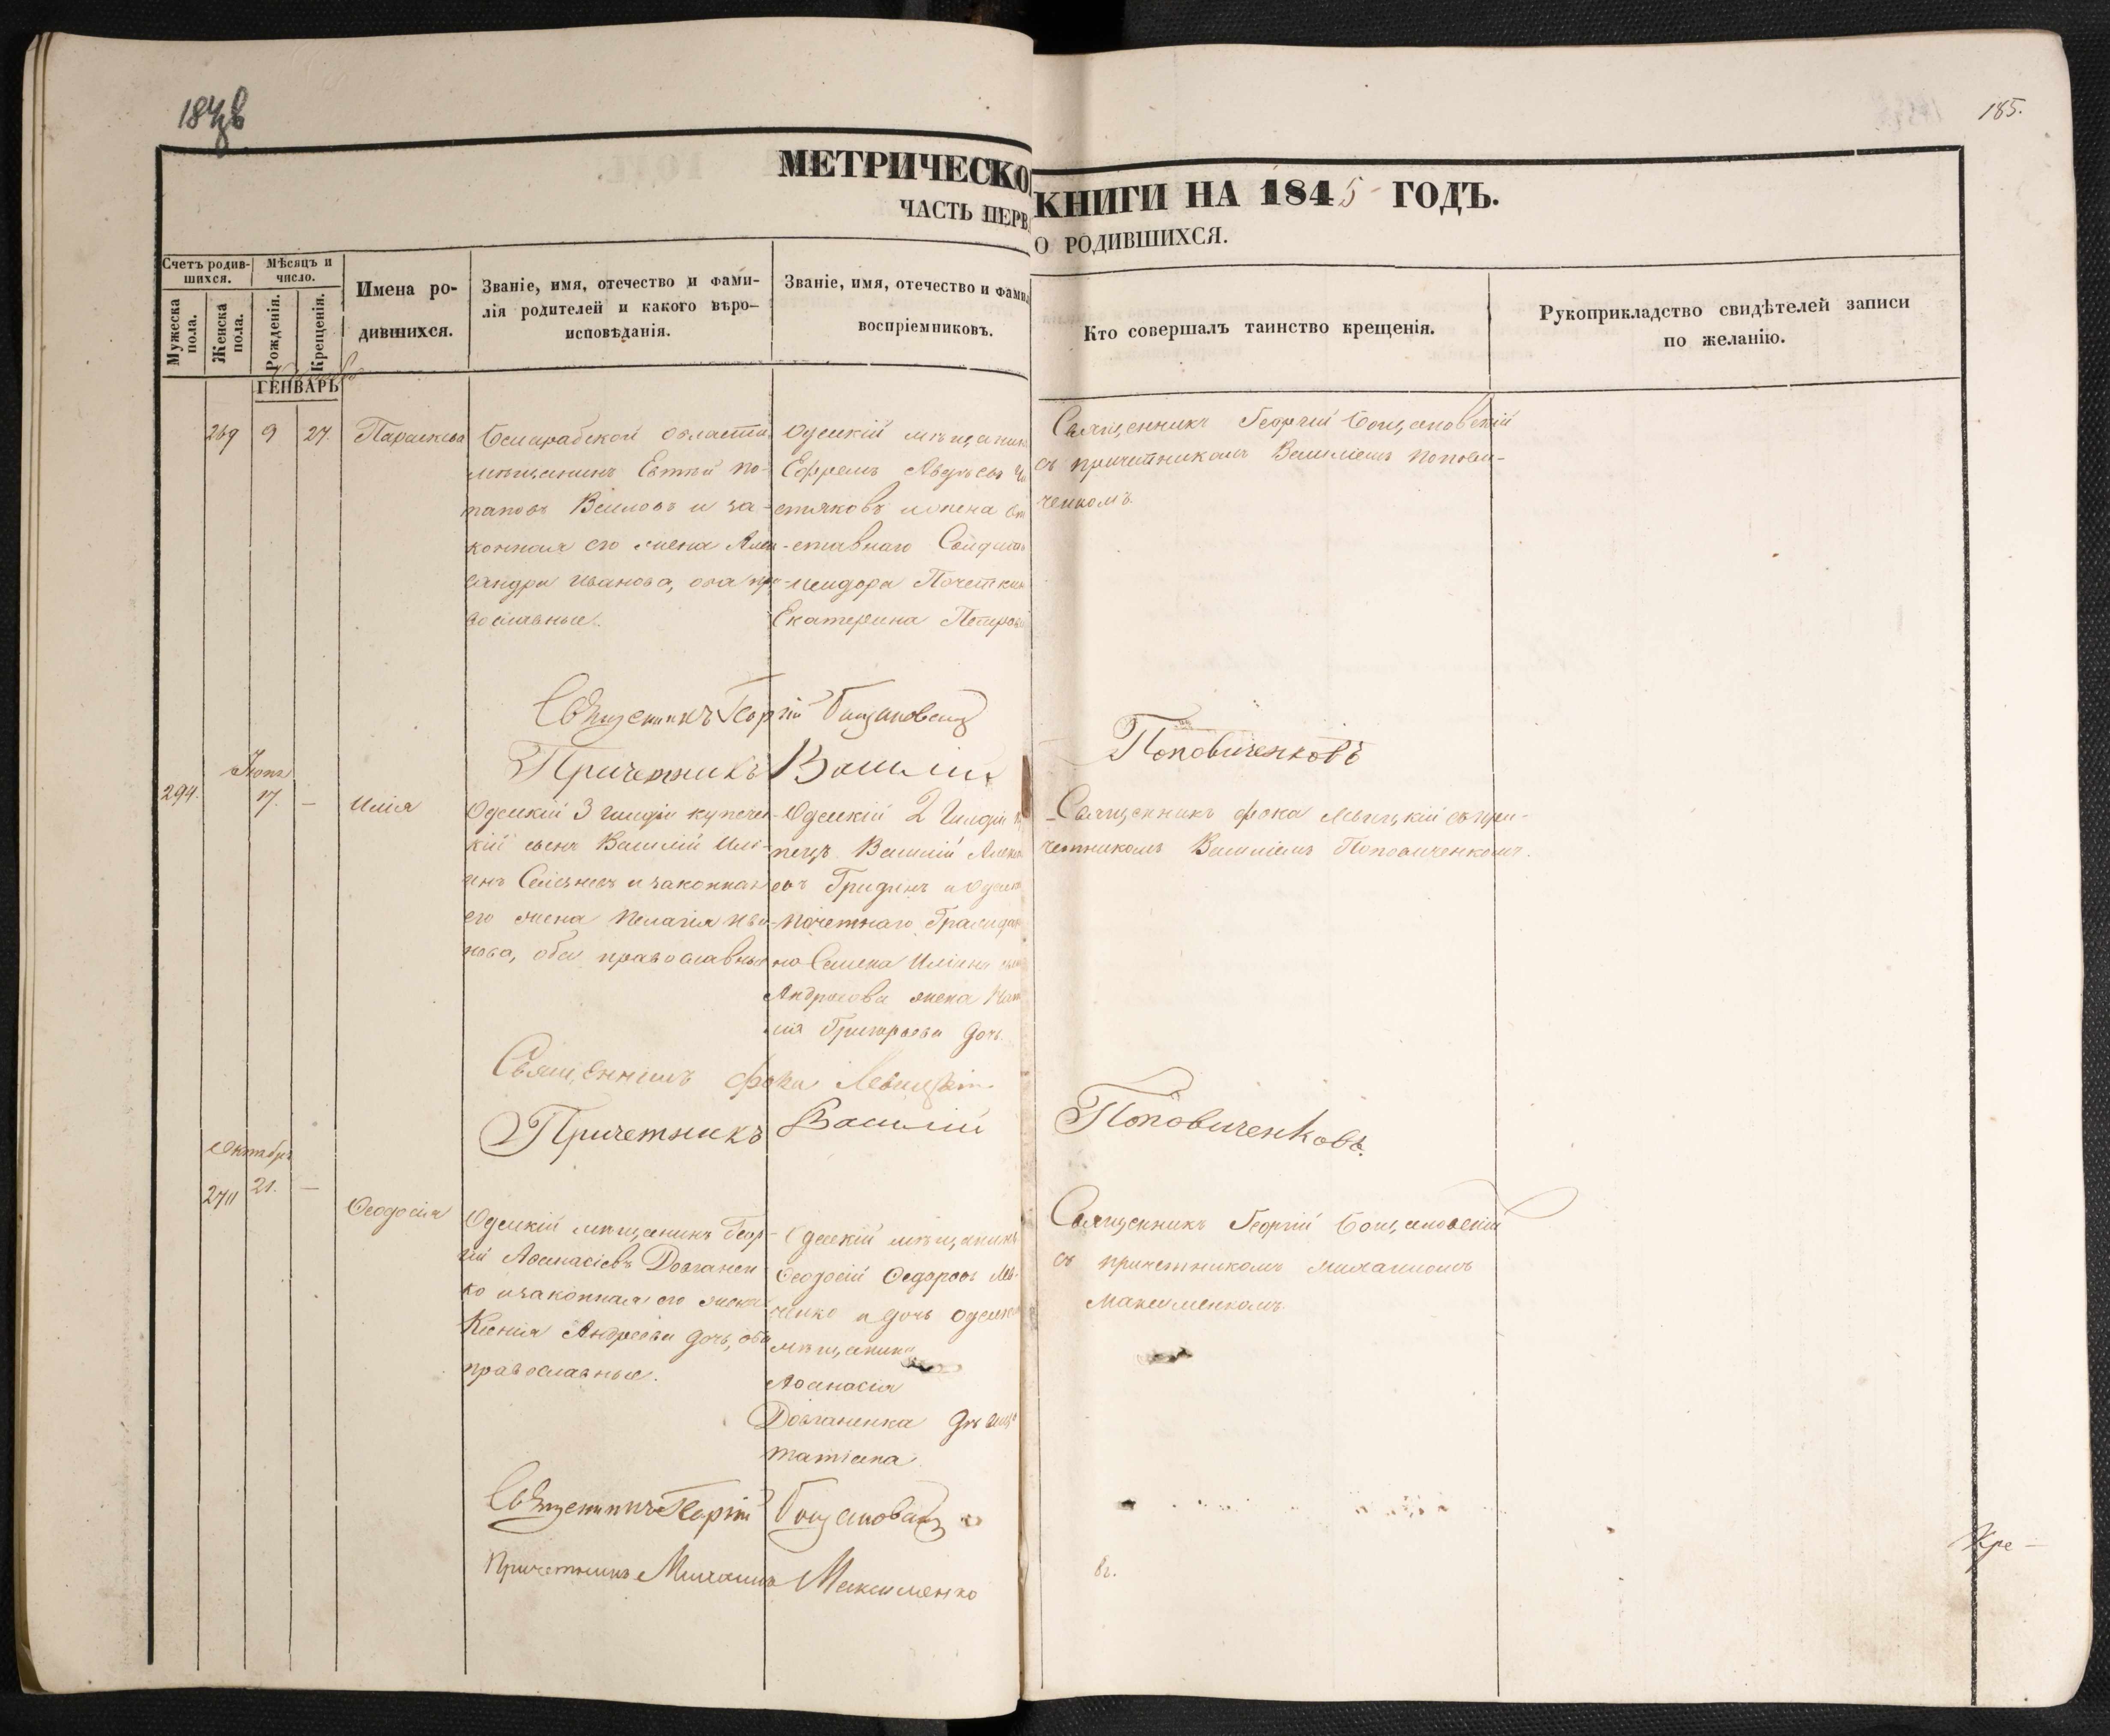 185.
МЕТРИЧЕСКО
КНИГИ НА 1845 ГОДЪ.
ЧАСТЬ ПЕРВ
О РОДИВШИХСЯ.
Счетъ родив-
шихся.
Мужеска пола.
Женска пола.
Мѣсяцъ и
число.
Рожденія.
Крещенія.
Имена ро-
дившихся.
Званіе, имя, отечество и фами-
лія родителей и какого вѣро-
исповѣданія.
Званіе, имя, отечество и фами
воспріемниковъ.
Кто совершалъ таинство крещенія.
Рукоприкладство свидѣтелей записи
по желанію.
ГЕНВАРЬ
269 9 27. Параскева
Бесарабской области
мѣщанинъ Евтей По-
таповъ и за-
конная его жена Алек
сандра Иванова, оба пра
вославные.
Одесскій мѣщанин
Ефремъ Авдѣевъ
жена
-ставнаго Солдата
Екатерина Петрова
Священникъ Георгій
съ причетникомъ Василіемъ Попови-
ченкомъ.
Священникъ Георгій
Причетникъ Василій Поповиченковъ
294. 17. — Илія
Одесскій 3 гильдіи купечес-
кій сынъ Василій Иль-
инъ и законная
его жена Пелагія Ива-
нова, оба православные
Одесскій 2 Гильдіи ку
пецъ Василій Алекс
евъ Гридинъ и Одесск
почетнаго Граждан
на Семена Ильина
Андросова жена
лія Григорьева дочь.
Священникъ Фока Левицкій съ при-
четникомъ Василіемъ Поповиченкомъ.
Священникъ Фока Левицкій
Причетникъ Василій Поповиченковъ.
Октябрь
21. — Ѳеодосія
Одесскій мѣщанинъ Геор-
гій Аѳанасіевъ Довганен
ко и законная его жена
Ксенія Андреева дочь, оба
православные.
Одесскій мѣщанинъ
Ѳеодосій Ѳедоровъ Лев-
ченко и дочь Одесск
мѣщанина
Аѳанасія
Довганенка
Татіана
Священникъ Георгій
съ причетникомъ Михаиломъ
Максименкомъ.
Священникъ Георгій
Причетникъ Михаилъ Максименко
Кре-